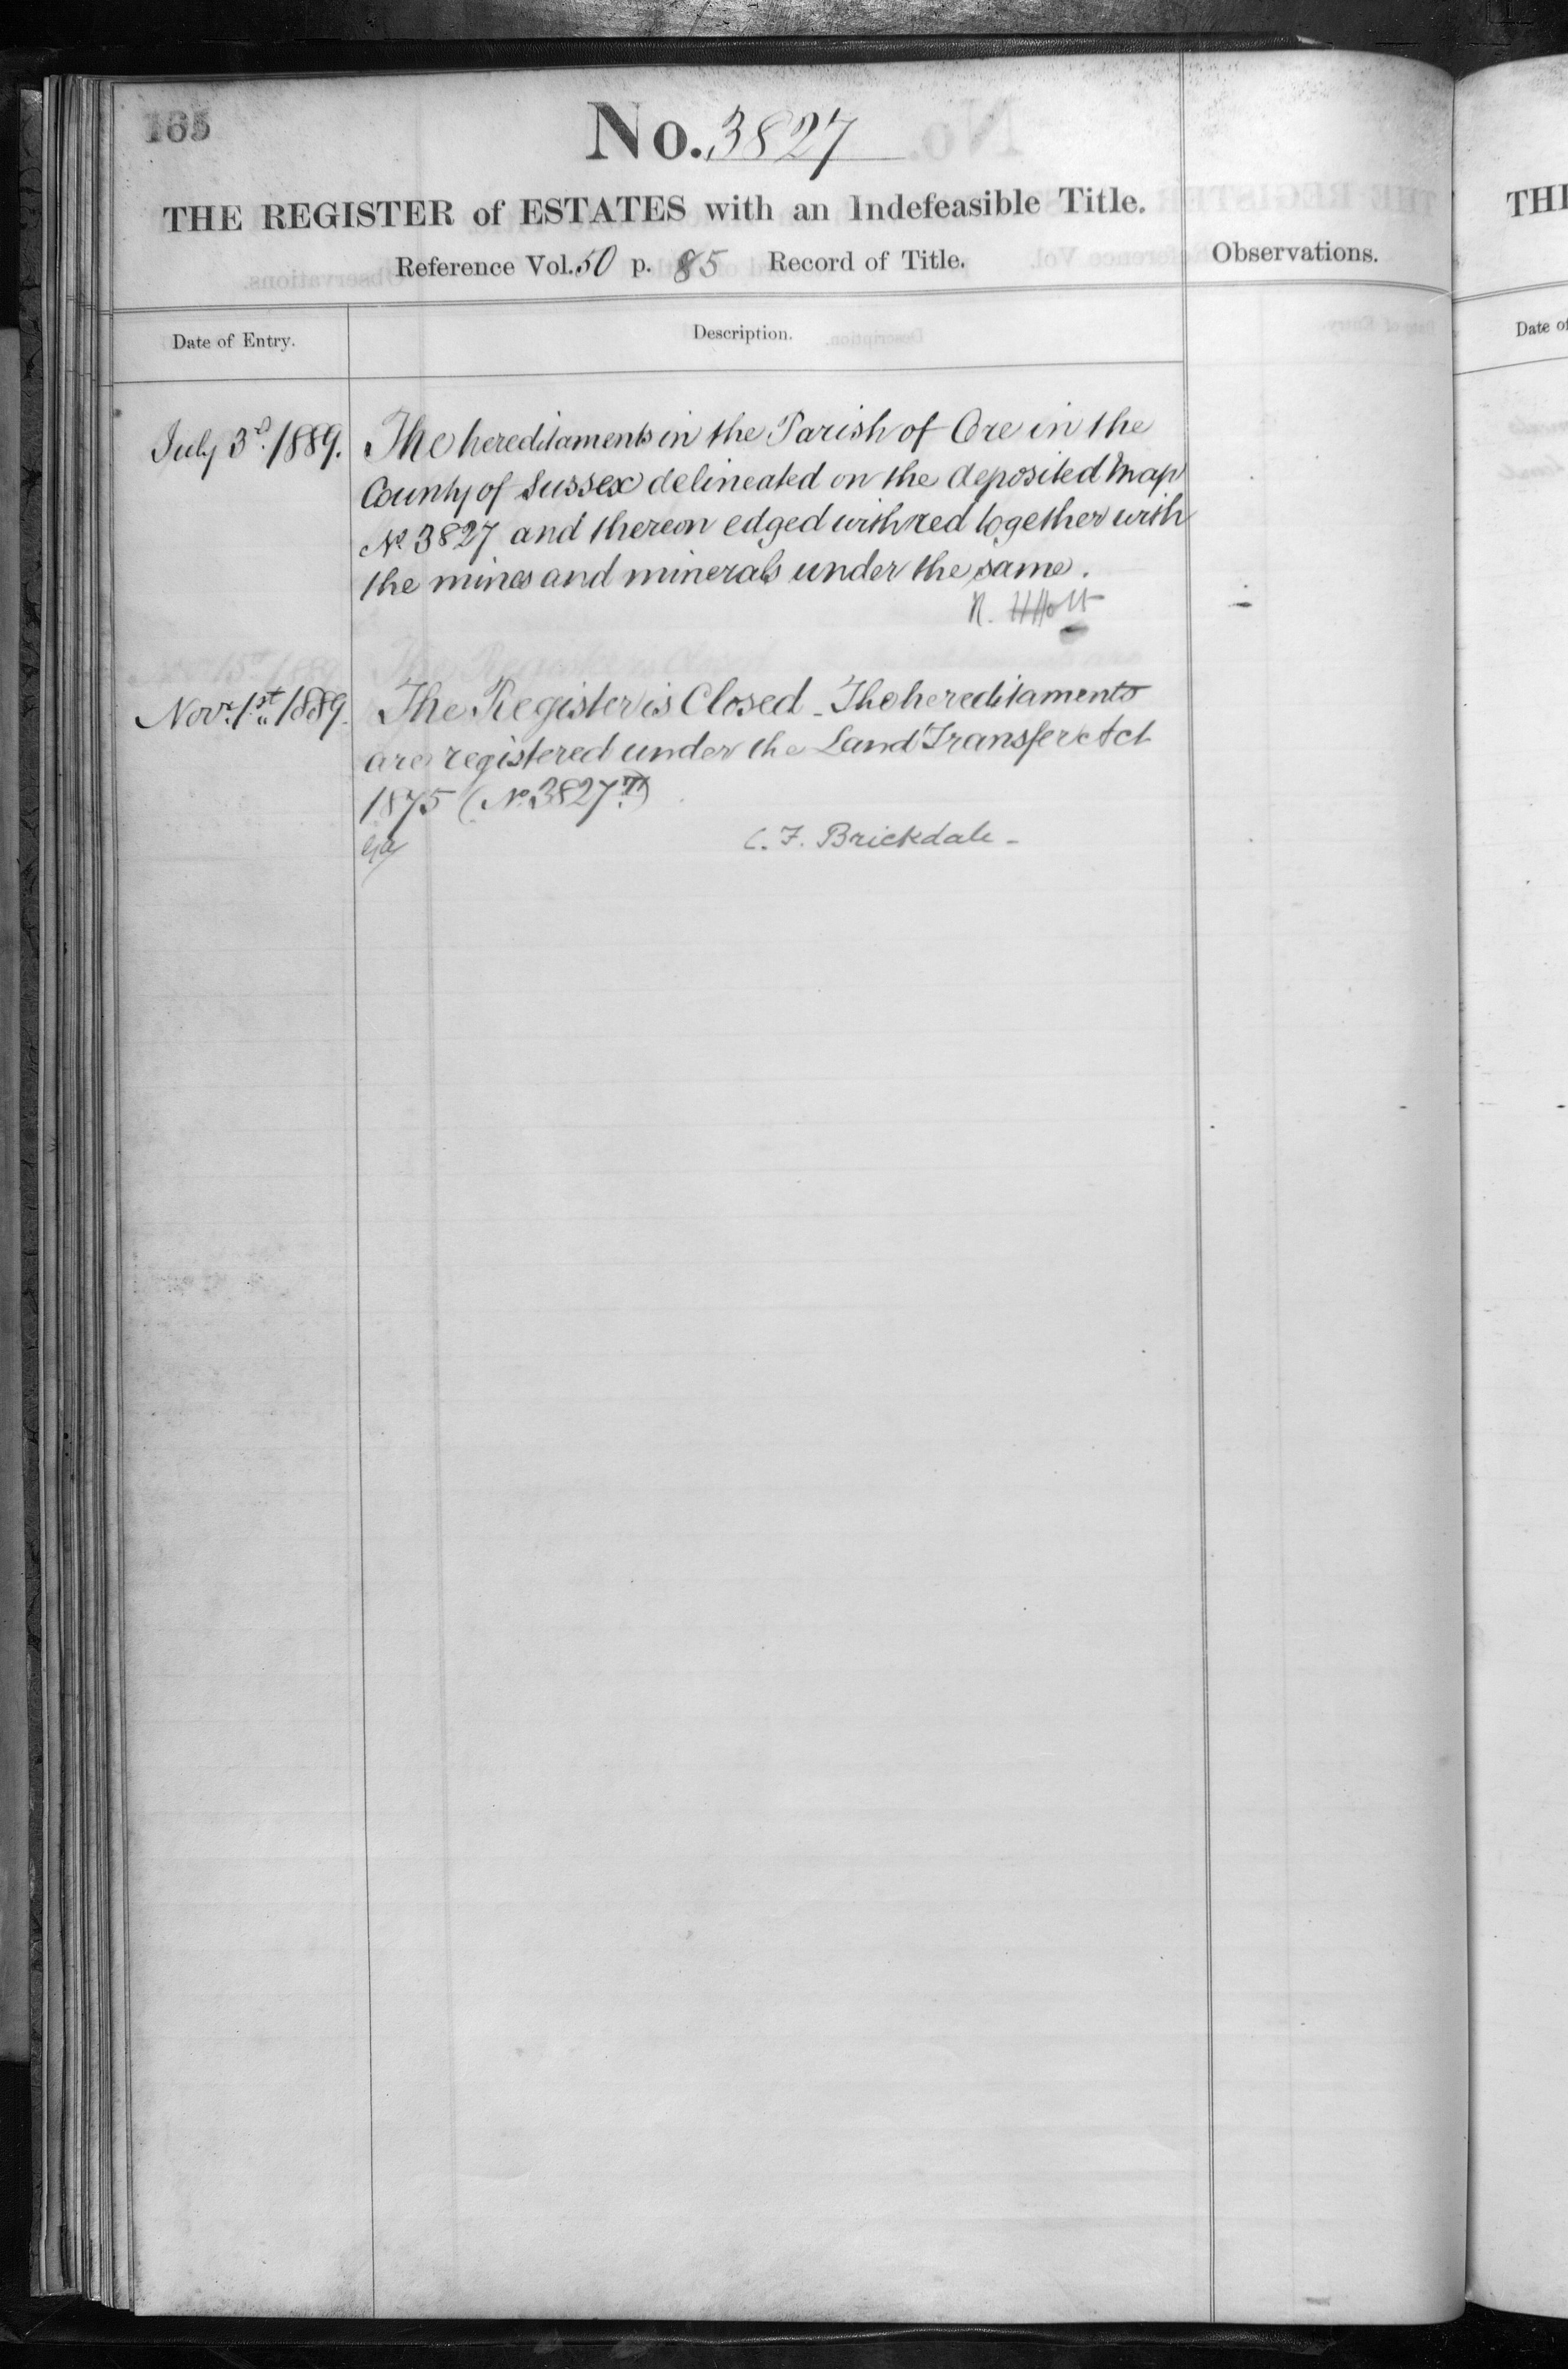 165
No. 3827
THE REGISTER of ESTATES with an Indefeasible Title.
Reference Vol. 50 p. 85 Record of Title.
Observations.
Date of Entry.
Description.
July 3d. 1889. The hereditaments in the Parish of Ore in the
County of Sussex delineated on the deposited Map
No 3827 and thereon edged with red together with
the mines and minerals under the same.
Novr. 1st 1889. The Register is Closed _ The hereditaments
are registered under the Land Transfer Act
1875 (No. 3827
C. F. Brickdale -
THE
Date of